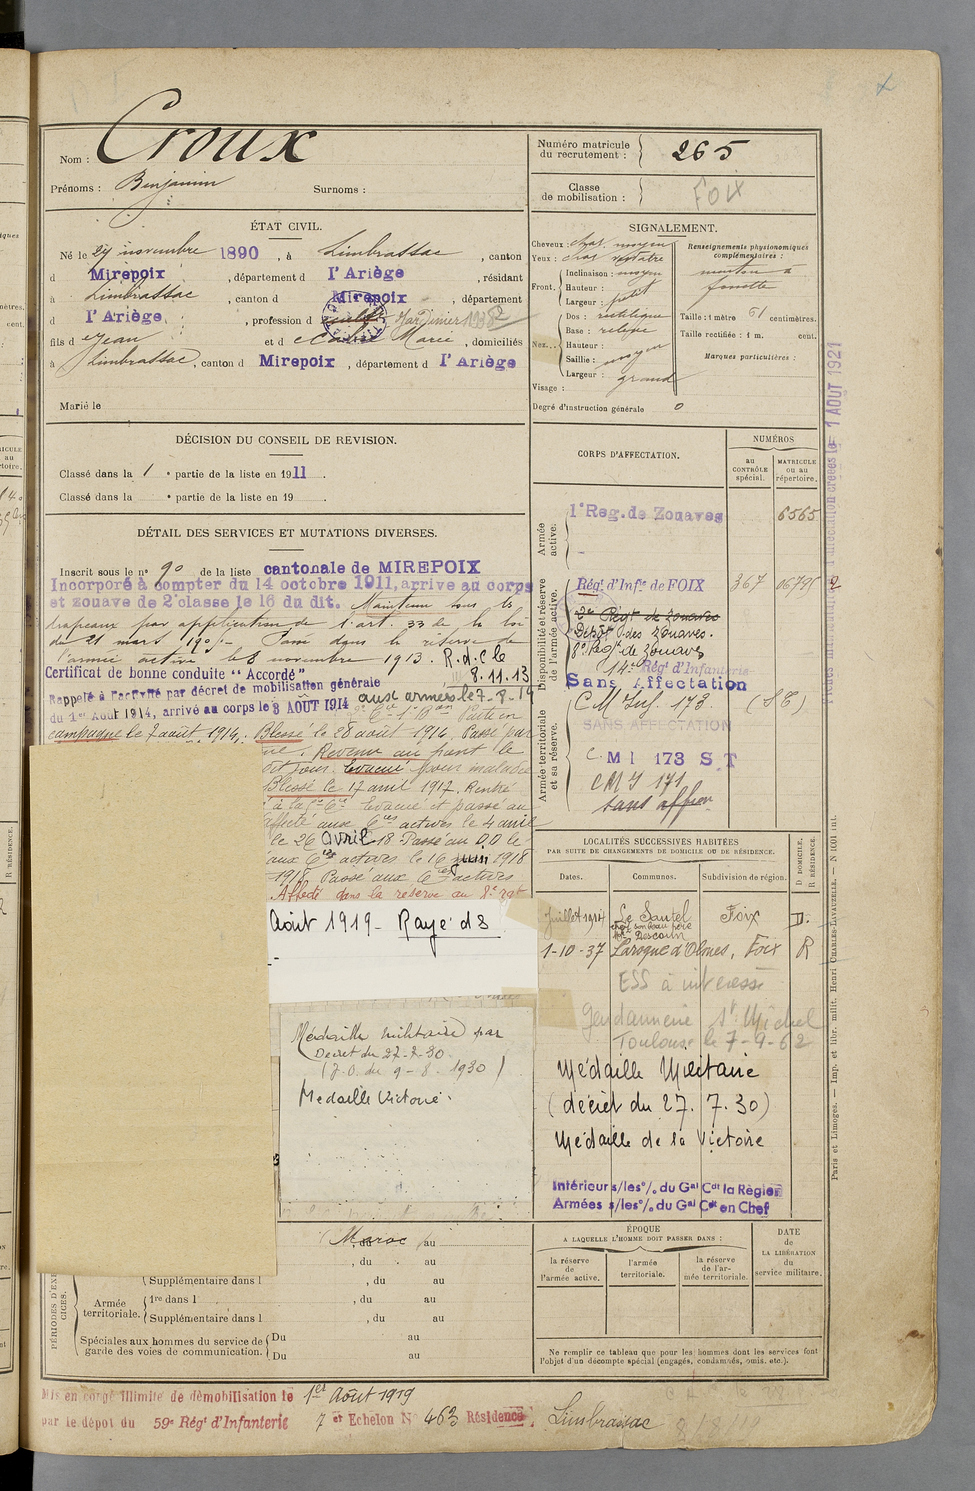 Nom : Croux
Prénoms : Benjamin Surnoms :
Numéro matricule du recrutement : 265
Classe de mobilisation : FOIX
ÉTAT CIVIL.
Né le 29 novembre 1890, à Limbrassac, canton
d Mirepoix, département d l'Ariège, résidant
à Limbrassac, canton d Mirepoix, département
d l'Ariège, profession d Jardinier
fils d Jean et d Marie, domiciliés
à Limbrassac, canton d Mirepoix, département d l'Ariège
Marié le
SIGNALEMENT.
Cheveux : chat. moyen
Yeux :
Front. Inclinaison : moyen
Hauteur :
Largeur : petit
Nez. Dos : rectiligne
Base : relevée
Hauteur :
Saillie : moyen
Largeur : grand
Visage :
Renseignements physionomiques complémentaires :
menton à fossette
Taille : 1 mètre 61 centimètres.
Taille rectifiée : 1 m. cent.
Marques particulières :
Degré d'instruction générale 0
DÉCISION DU CONSEIL DE REVISION.
Classé dans la 1e partie de la liste en 1911.
Classé dans la e partie de la liste en 19 .
DÉTAIL DES SERVICES ET MUTATIONS DIVERSES.
Inscrit sous le n° 90 de la liste cantonale de MIREPOIX
Incorporé à compter du 14 octobre 1911, arrive au corps
et zouave de 2e classe le 16 du dit. Maintenu sous les
drapeaux par application de l'art. 33 de la loi
du 21 mars 1905. Passé dans la réserve de
l'armée active le 8 novembre 1913. R.d.C le
Certificat de bonne conduite "Accordé" 8.11.13
Rappelé à l'activité par décret de mobilisation générale
du 1er Août 1914, arrivé au corps le 3 AOUT 1914 aux armées le 7-8-14
Parti en
campagne le 7 août 1914. Blessé le 28 août 1914. Passé par
Revenu au front le
Evacué pour maladie
Blessé le 17 avril 1917. Rentré
à la Cie Evacué et passé au
affecté aux Cies actives le 4 avril
le 26 avril 18 Passé au D.D le
aux Cies actives le 16 juin 1918
1918. Passé aux Cies actives
Affecté dans la réserve au 8e rgt
Août 1919 - Rayé ds
Médaille militaire par
Décret du 27-7-30
(J.O. du 9-8-1930)
Médaille Victoire.
CORPS D'AFFECTATION.
NUMÉROS
au CONTRÔLE spécial.
MATRICULE OU AU répertoire.
Armée active.
1er Reg. de Zouaves 6565
Disponibilité et réserve de l'armée active.
Régt d'Infie de FOIX 367
2e Régt de Zouaves
Dépôt des Zouaves.
8e Régt de Zouaves
14e Régt d'Infanterie
Sans Affectation
Armée territoriale et sa réserve.
C M Inf. 173. (S T)
SANS AFFECTATION
C. M I 173 S T
C M I 171
sans affon
1 AOUT 1921
LOCALITÉS SUCCESSIVES HABITÉES
PAR SUITE DE CHANGEMENTS DE DOMICILE OU DE RÉSIDENCE.
Dates. Communes. Subdivision de région. D DOMICILE. R RÉSIDENCE.
Juillet 1914 Le Sautel Foix D.
chez son beau père
Mr Descoun
1-10-37 Laroque d'Olmes, Foix R
ESS à intéressé
Gendarmerie St Michel
Toulouse le 7-9-62
Médaille Militaire
(décret du 27. 7. 30)
Médaille de la Victoire
Intérieur s/les °/. du Gal Cdt la Région
Armées s/les °/. du Gal Cdt en Chef
Maroc du au
, du au
Supplémentaire dans l , du au
PÉRIODES D'EXERCICES.
Armée territoriale. 1re dans l , du au
Supplémentaire dans l , du au
Spéciales aux hommes du service de garde des voies de communication. Du au
Du au
ÉPOQUE
A LAQUELLE L'HOMME DOIT PASSER DANS :
la réserve de l'armée active.
l'armée territoriale.
la réserve de l'armée territoriale.
DATE de LA LIBÉRATION du service militaire.
Ne remplir ce tableau que pour les hommes dont les services font
l'objet d'un décompte spécial (engagés, condamnés, omis, etc.).
Paris et Limoges. — Imp. et libr. milit. Henri CHARLES-LAVAUZELLE.
Mis en congé illimité de démobilisation le 1er Août 1919
par le dépôt du 59e Régt d'Infanterie 7 et Echelon N° 463 Résidence Limbrassac